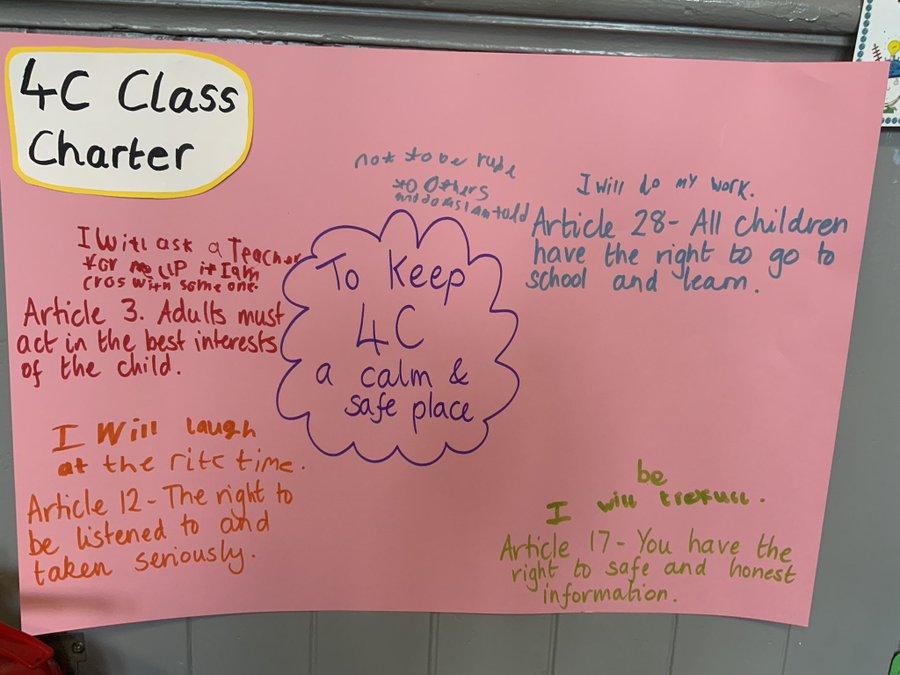 4C Class
Charter
not to be rude
to Others
and do as I am told
I will do my work.
Article 28- All children
have the right to go to
school and learn.
I will ask a Teacher
for if I am
cros with some one.
Article 3. Adults must
act in the best interests
of the child.
To Keep
4C
a calm &
safe place
I Will laugh
at the rite time.
Article 12- The right to
be listened to and
taken seriously.
be
I will
Article 17- You have the
right to safe and honest
information.